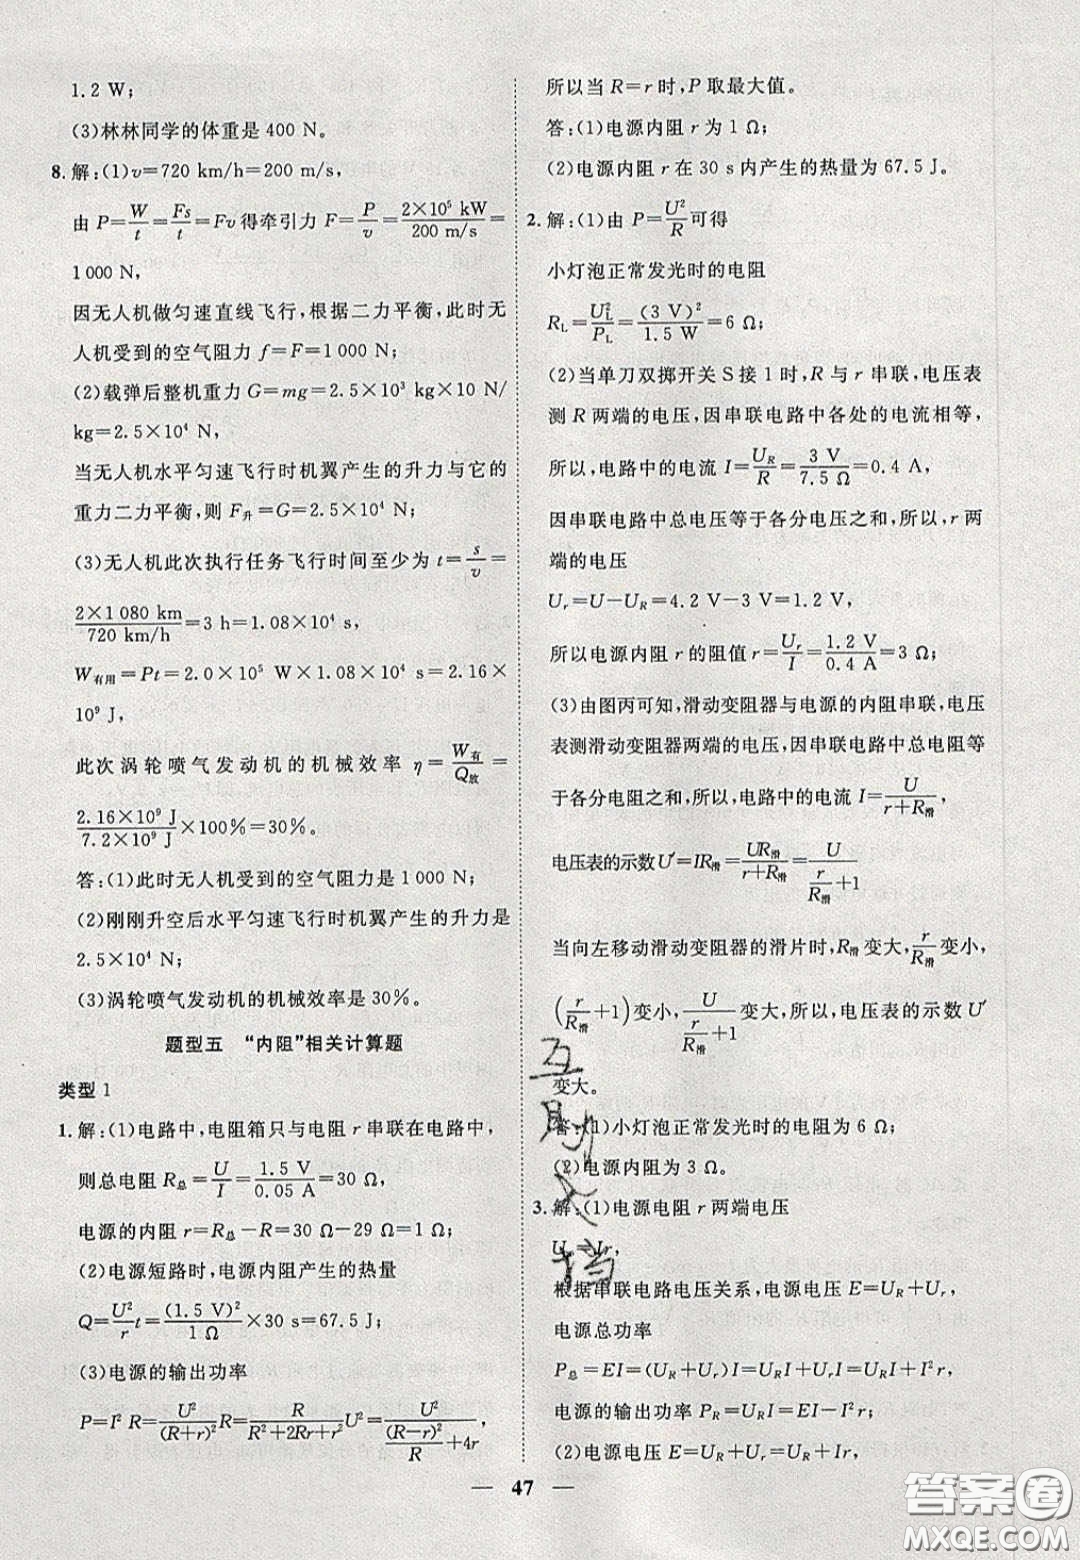 1.2 W；
(3)林林同学的体重是 400 N。
8. 解：(1)v=720 km/h=200 m/s，
由 P=W/t=Fs/t=Fv得牵引力 F=P/v=2×10⁵ kW/200 m/s=
1 000 N，
因无人机做匀速直线飞行，根据二力平衡，此时无
人机受到的空气阻力 f=F=1 000 N；
(2)载弹后整机重力 G=mg=2.5×10³ kg×10 N/
kg=2.5×10⁴ N，
当无人机水平匀速飞行时机翼产生的升力与它的
重力二力平衡，则 F升=G=2.5×10⁴ N；
(3)无人机此次执行任务飞行时间至少为 t=s/v=
2×1 080 km/720 km/h=3 h=1.08×10⁴ s，
W有用=Pt=2.0×10⁵ W×1.08×10⁴ s=2.16×
10⁹ J，
此次涡轮喷气发动机的机械效率 η=W有/Q放=
2.16×10⁹ J/7.2×10⁹ J×100%=30%。
答：(1)此时无人机受到的空气阻力是 1 000 N；
(2)刚刚升空后水平匀速飞行时机翼产生的升力是
2.5×10⁴ N；
(3)涡轮喷气发动机的机械效率是 30%。
题型五 “内阻”相关计算题
类型 1
1. 解：(1)电路中，电阻箱只与电阻 r 串联在电路中，
则总电阻 R总=U/I=1.5 V/0.05 A=30 Ω，
电源的内阻 r=R总－R=30 Ω－29 Ω=1 Ω；
(2)电源短路时，电源内阻产生的热量
Q=U²/r t=(1.5 V)²/1 Ω×30 s=67.5 J；
(3)电源的输出功率
P=I² R=U²/(R+r)² R=R/(R²+2Rr+r²) U²=U²/((R－r)²/R+4r)，
所以当 R=r 时，P 取最大值。
答：(1)电源内阻 r 为 1 Ω；
(2)电源内阻 r 在 30 s 内产生的热量为 67.5 J。
2. 解：(1)由 P=U²/R可得
小灯泡正常发光时的电阻
R_L=U_L²/P_L=(3 V)²/1.5 W=6 Ω；
(2)当单刀双掷开关 S接 1 时，R 与 r 串联，电压表
测 R 两端的电压，因串联电路中各处的电流相等，
所以，电路中的电流 I=U_R/R=3 V/7.5 Ω=0.4 A，
因串联电路中总电压等于各分电压之和，所以，r 两
端的电压
U_r=U－U_R=4.2 V－3 V=1.2 V，
所以电源内阻 r 的阻值 r=U_r/I=1.2 V/0.4 A=3 Ω；
(3)由图丙可知，滑动变阻器与电源的内阻串联，电压
表测滑动变阻器两端的电压，因串联电路中总电阻等
于各分电阻之和，所以，电路中的电流 I=U/(r+R滑)，
电压表的示数U′=IR滑=UR滑/(r+R滑)=U/(r/R滑+1)
当向左移动滑动变阻器的滑片时，R滑 变大，r/R滑变小，
(r/R滑+1)变小，U/(r/R滑+1)变大，所以，电压表的示数 U′
变大。
答：(1)小灯泡正常发光时的电阻为 6 Ω；
(2)电源内阻为 3 Ω。
3. 解：(1)电源电阻 r 两端电压
U_r=Ir，
根据串联电路电压关系，电源电压 E=U_R+U_r，
电源总功率
P总=EI=(U_R+U_r)I=U_RI+U_rI=U_RI+I²r，
电源的输出功率 P_R=U_RI=EI－I²r，
(2)电源电压 E=U_R+U_r=U_R+Ir，
— 47 —
互助文档
答案圈
MXQE.COM